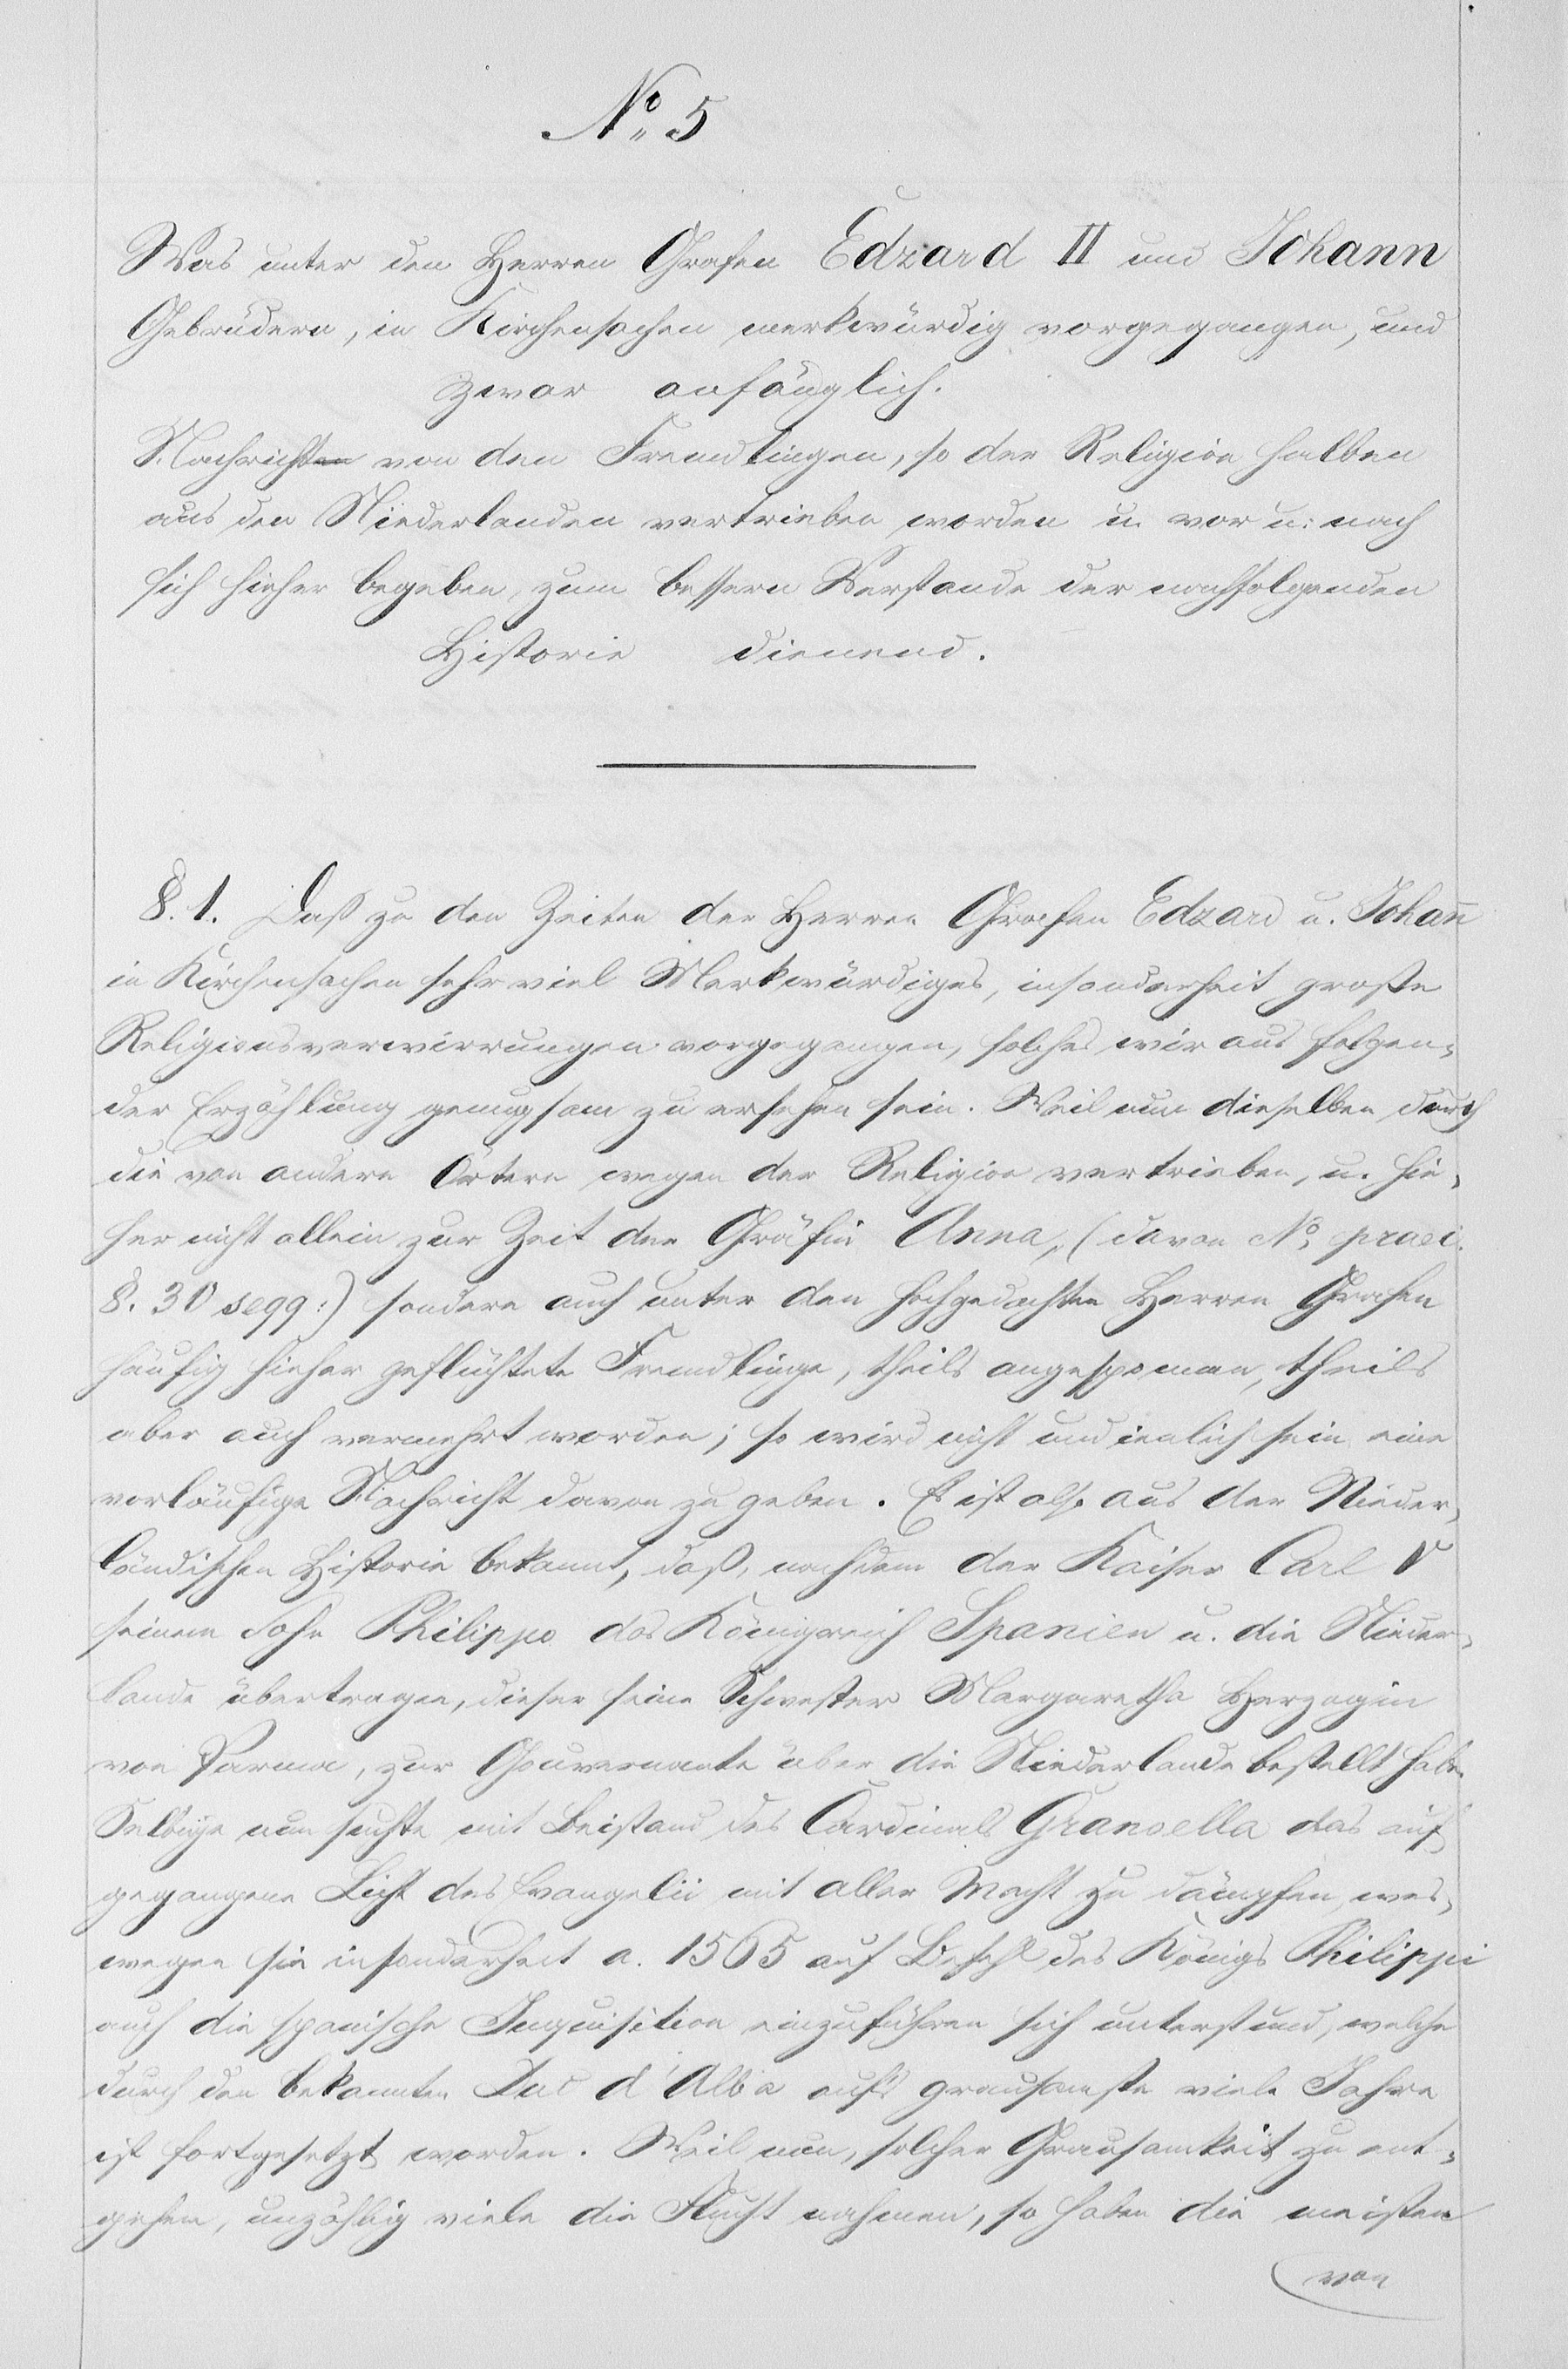 No. 5
Was unter den Herren Grafen Edzard II und Johann
Gebrüdern, in Kirchensachen merkwürdig vorgegangen, und
zwar anfänglich.
Nachrichten von den Fremdlingen, so der Religion halben
aus den Niederlanden vertrieben worden u. vor u: nach
sich hieher begeben, zum bessern Verstande der nachfolgenden
Historie dienend.
§. 1. Daß zu den Zeiten der Herren Grafen Edzard u. Johan̄
in Kirchensachen sehr viel Merkwürdiges, insonderheit große
Religionsverwirrungen vorgegangen, solches wir aus folgen-
der Erzählung genugsam zu ersehen sein. Weil nun dieselben durch
die von andern Örtern wegen der Religion vertrieben, u. hie-
her nicht allein zur Zeit der Gräfin Anna, (davon No. praec.
§. 30 seqq:) sondern auch unter den hochgedachten Herren Grafen
häufig hieher geflüchtete Fremdlinge, theils angesponnen, theils
aber auch vermehrt worden; so wird nicht undienlich sein eine
vorläufige Nachricht davon zu geben. Es ist also aus der Nieder-
ländischen Historie bekannt, daß, nachdem der Kaiser Carl V
seinem Sohn Philippo das Königreich Spanien u. die Nieder-
lande übertragen, dieser seine Schwester Margaretha Herzogin
von Parma, zur Gouvernante über die Niederlande bestellt habe.
Selbige nun suchte mit Beistand des Cardinals Granvella das auf
gegangene Licht des Evangelii mit aller Macht zu dämpfen, wes-
wegen sie insonderheit a. 1565 auf Befehl des Königs Philippi
auch die spanische Inquisition einzuführen sich unterstund, welche
durch den bekannten Duc d'Alba aufs grausamste viele Jahre
ist fortgesetzt worden. Weil nun, solcher Grausamkeit zu ent-
gehen, unzählig viele die Flucht nahmen, so haben die meisten
von